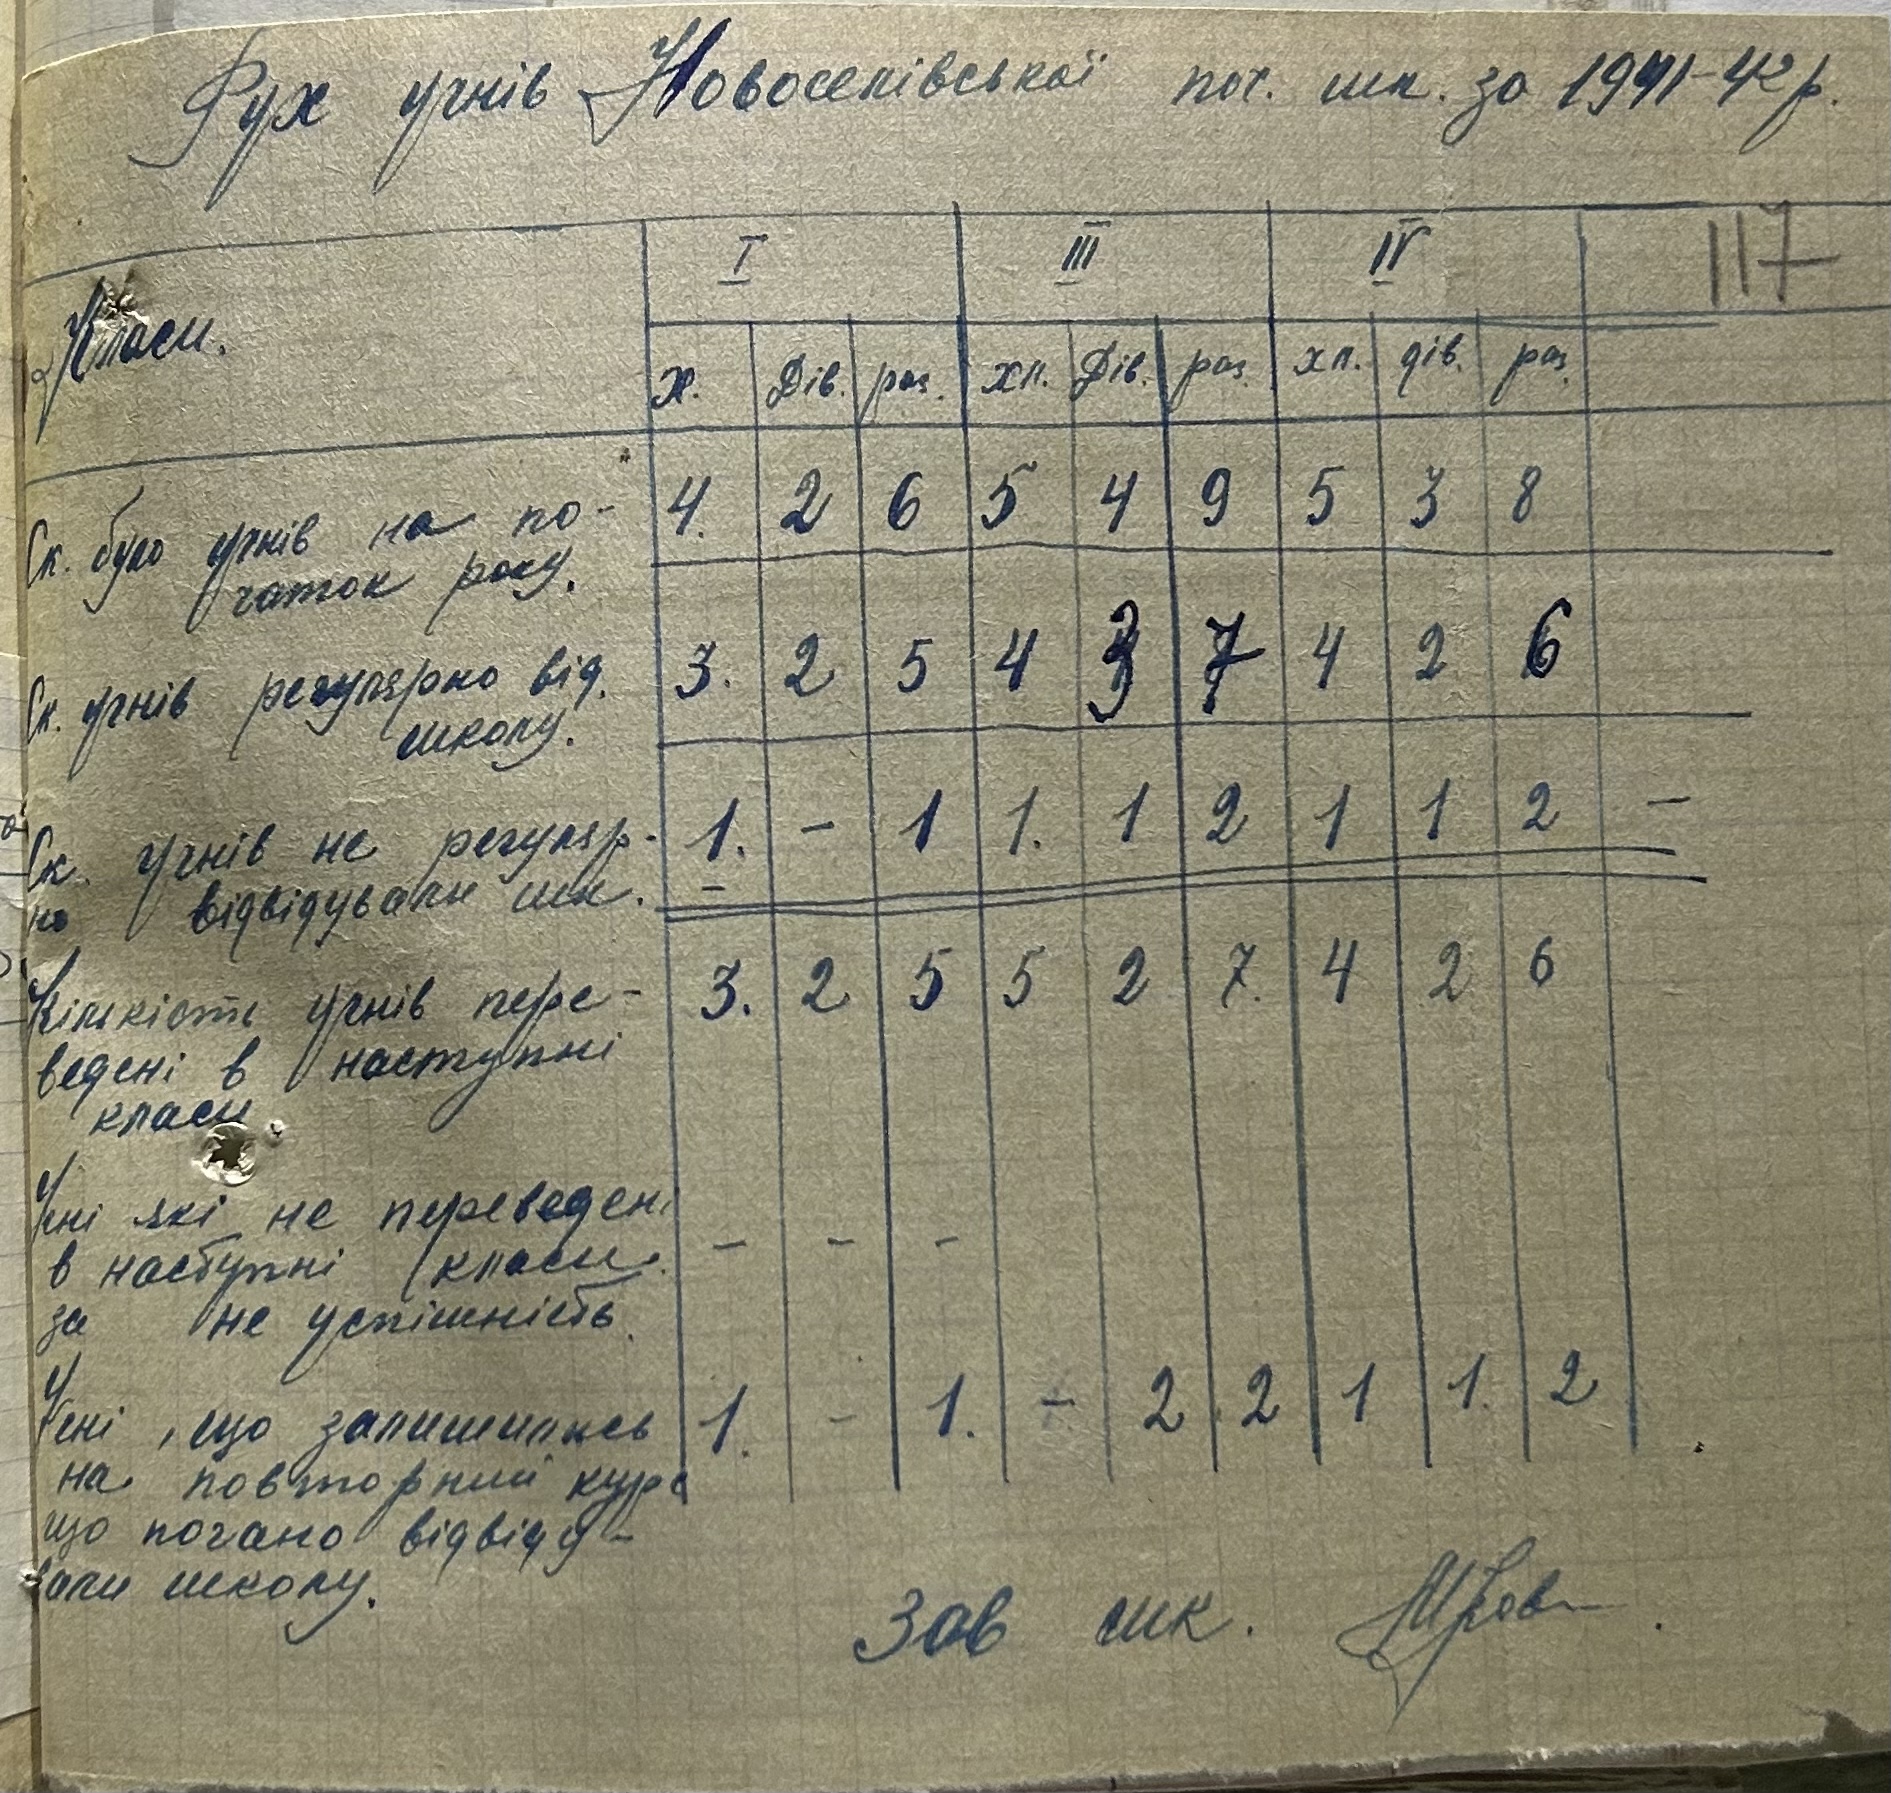 Рух учнів Новоселівської поч. шк. за 1941-42 р.
117
I III IV
Класи.
х. Дів. раз. хл. Дів. раз. хл. дів. раз.
Ск. було учнів на по- 4. 2 6 5 4 9 5 3 8
чаток року.
Ск. учнів регулярно від. 3. 2 5 4 3 7 4 2 6
школу.
Ск. учнів не регуляр- 1. – 1 1. 1 2 1 1 2 –
но відвідували шк. –
Кількість учнів пере- 3. 2 5 5 2 7. 4 2 6
ведені в наступні
класи
Учні які не переведені
в наступні класи. – – –
за не успішність.
Учені, що залишились 1. - 1. - 2 2 1 1. 2
на повторний курс
що погано відвіду-
вали школу.
Зав шк.